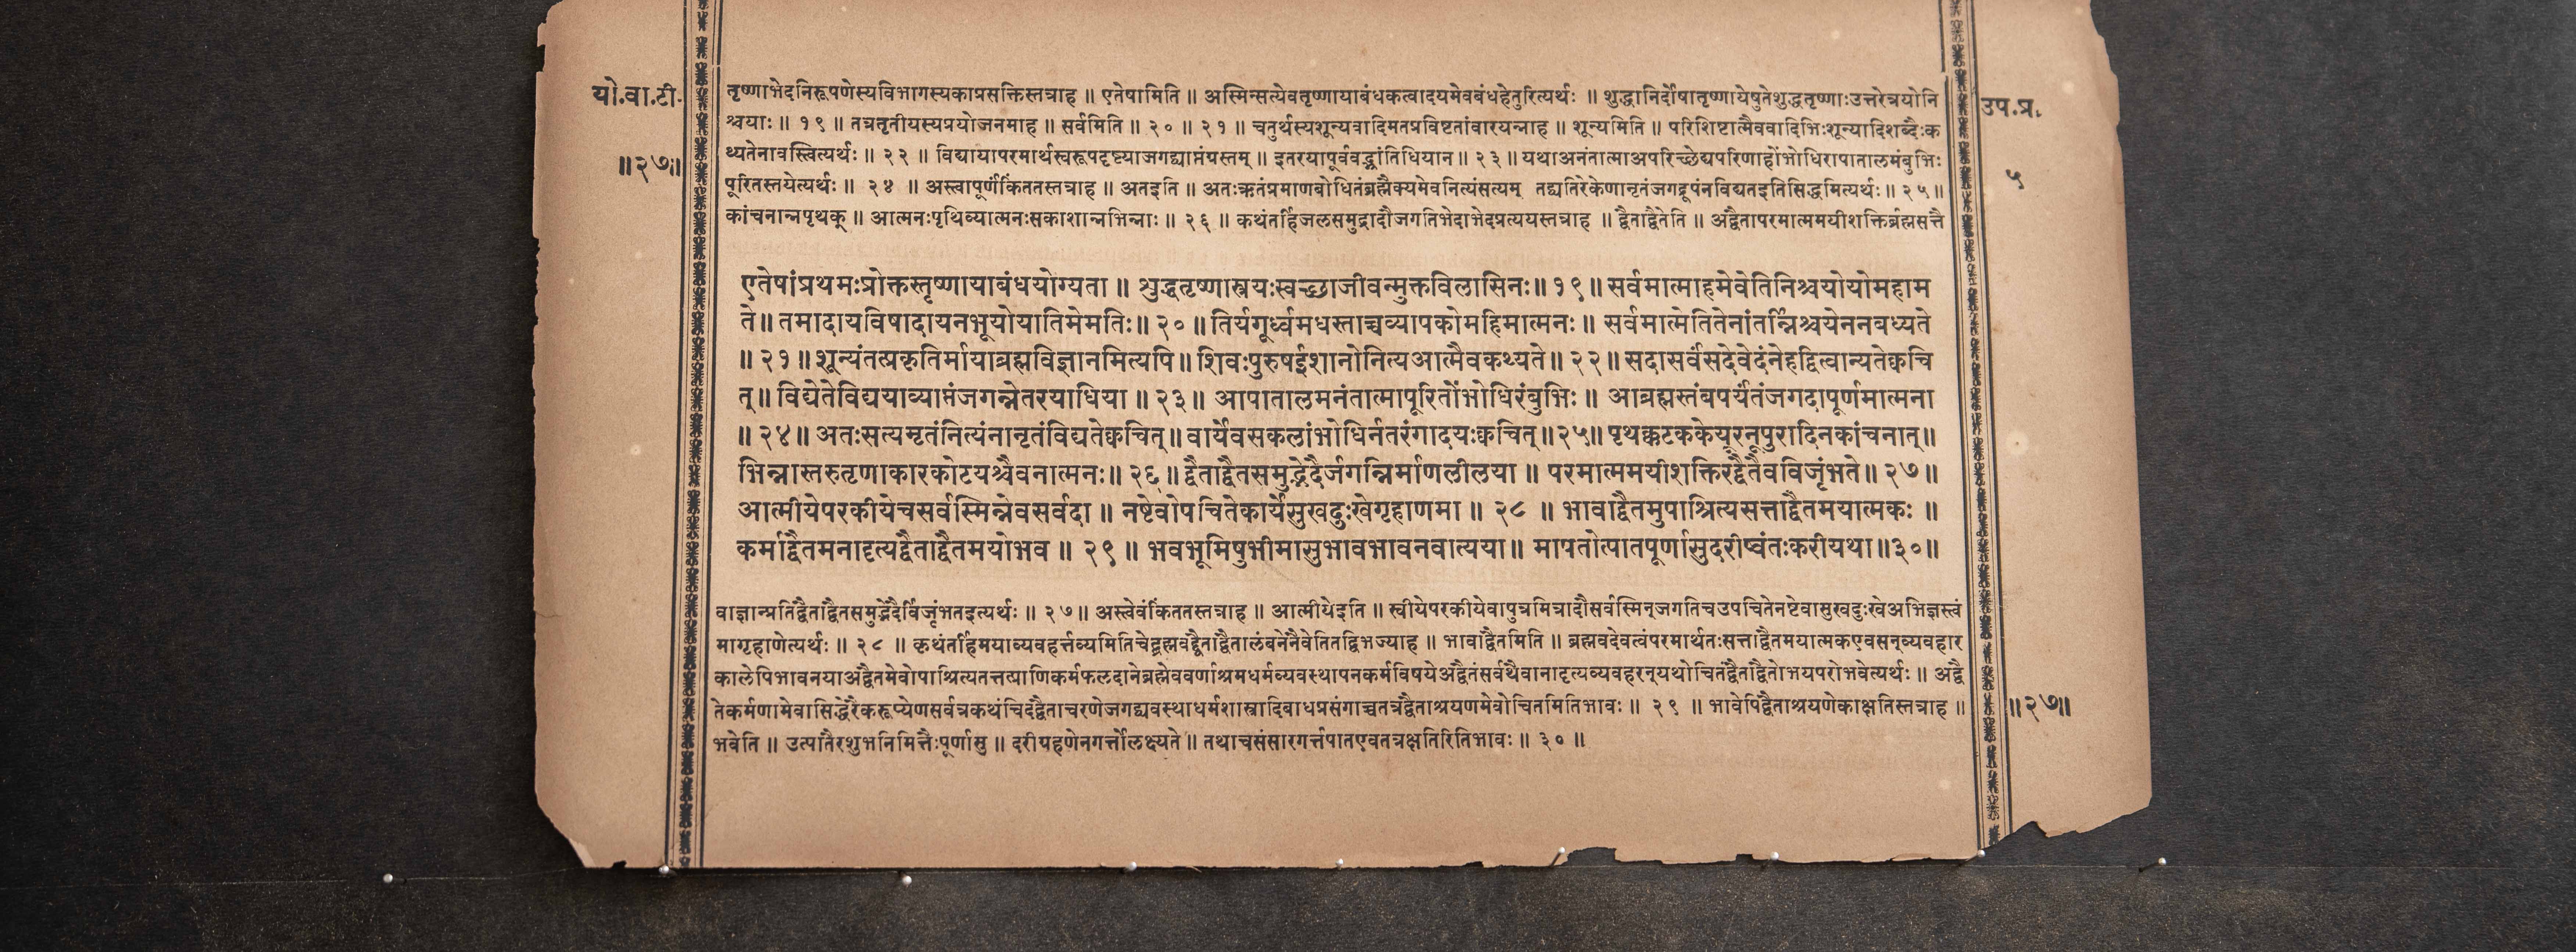 यो.वा.टी.
॥२७॥
तृष्णाभेदनिरूपणेस्यविभागस्यकाप्रसक्तिस्तत्राह ॥ एतेषामिति ॥ अस्मिन्सत्येवतृष्णायाबंधकत्वादयमेवबंधहेतुरित्यर्थः ॥ शुद्धानिर्दोषातृष्णायेषुतेशुद्धतृष्णाःउत्तरेत्रयोनि
श्चयाः ॥ १९ ॥ तत्रतृतीयस्यप्रयोजनमाह ॥ सर्वमिति ॥ २० ॥ २१ ॥ चतुर्थस्यशून्यवादिमतप्रविष्टतांवारयन्नाह ॥ शून्यमिति ॥ परिशिष्टात्मैववादिभिःशून्यादिशब्दैःक
थ्यतेनावस्त्वित्यर्थः ॥ २२ ॥ विद्यायापरमार्थस्वरूपदृष्ट्याजगद्व्याप्तंग्रस्तम् ॥ इतरयापूर्ववद्भ्रांतिधियान ॥ २३ ॥ यथाअनंतात्माअपरिच्छेद्यपरिणाहोंभोधिरापातालमंबुभिः
पूरितस्तयेत्यर्थः ॥ २४ ॥ अस्त्वापूर्णंकिंततस्तत्राह ॥ अतइति ॥ अतःऋतंप्रमाणबोधितंब्रह्मैक्यमेवनित्यंसत्यम् तद्व्यतिरेकेणानृतंजगद्रूपंनविद्यतइतिसिद्धमित्यर्थः ॥ २५ ॥
कांचनान्नपृथक् ॥ आत्मनःपृथिव्यात्मनःसकाशान्नभिन्नाः ॥ २६ ॥ कथंतर्हिजलसमुद्रादौजगतिभेदाभेदप्रत्ययस्तत्राह ॥ द्वैताद्वैतेति ॥ अद्वैतापरमात्ममयीशक्तिर्ब्रह्मसत्तै
एतेषांप्रथमःप्रोक्तस्तृष्णायाबंधयोग्यता ॥ शुद्धतृष्णास्त्रयःस्वच्छाजीवन्मुक्तविलासिनः ॥ १९ ॥ सर्वमात्माहमेवेतिनिश्चयोयोमहाम
ते ॥ तमादायविषादायनभूयोयातिमेमतिः ॥ २० ॥ तिर्यगूर्ध्वमधस्ताच्चव्यापकोमहिमात्मनः ॥ सर्वमात्मेतितेनांतर्निश्चयेननबध्यते
॥ २१ ॥ शून्यंतत्प्रकृतिर्मायाब्रह्मविज्ञानमित्यपि ॥ शिवःपुरुषईशानोनित्यआत्मैवकथ्यते ॥ २२ ॥ सदासर्वंसदेवेदंनेहद्वित्वान्यतेक्वचि
त् ॥ विद्येतेविद्ययाव्याप्तंजगन्नेतरयाधिया ॥ २३ ॥ आपातालमनंतात्मापूरितोंभोधिरंबुभिः ॥ आब्रह्मस्तंबपर्यंतंजगदापूर्णमात्मना
॥ २४ ॥ अतःसत्यमृतंनित्यंनानृतंविद्यतेक्वचित् ॥ वार्येवसकलांभोधिर्नतरंगादयःक्वचित् ॥ २५ ॥ पृथक्कटककेयूरनूपुरादिनकांचनात् ॥
भिन्नास्तरुतृणाकारकोटयश्चैवनात्मनः ॥ २६ ॥ द्वैताद्वैतसमुद्भेदैर्जगन्निर्माणलीलया ॥ परमात्ममयीशक्तिरद्वैतैवविजृंभते ॥ २७ ॥
आत्मीयेपरकीयेचसर्वस्मिन्नेवसर्वदा ॥ नष्टेवोपचितेकार्येसुखदुःखेगृहाणमा ॥ २८ ॥ भावाद्वैतमुपाश्रित्यसत्ताद्वैतमयात्मकः ॥
कर्माद्वैतमनादृत्यद्वैताद्वैतमयोभव ॥ २९ ॥ भवभूमिषुभीमासुभावभावनवात्यया ॥ मापतोत्पातपूर्णासुदरीष्वंतःकरीयथा ॥ ३० ॥
वाज्ञान्प्रतिद्वैताद्वैतसमुद्भेदैर्विजृंभतइत्यर्थः ॥ २७ ॥ अस्त्वेवंकिंततस्तत्राह ॥ आत्मीयेइति ॥ स्वीयेपरकीयेवापुत्रमित्रादौसर्वस्मिन्जगतिचउपचितेनष्टेवासुखदुःखेअभिज्ञस्त्वं
मागृहाणेत्यर्थः ॥ २८ ॥ कथंतर्हिमयाव्यवहर्त्तव्यमितिचेद्ब्रह्मवद्द्वैताद्वैतालंबनेनैवेतितद्विभज्याह ॥ भावाद्वैतमिति ॥ ब्रह्मवदेवत्वंपरमार्थतःसत्ताद्वैतमयात्मकएवसन्व्यवहार
कालेपिभावनयाअद्वैतमेवोपाश्रित्यतत्तत्प्राणिकर्मफलदानेब्रह्मेववर्णाश्रमधर्मव्यवस्थापनकर्मविषयेअद्वैतंसर्वथैवानादृत्यव्यवहरन्यथोचितंद्वैताद्वैतोभयपरोभवेत्यर्थः ॥ अद्वै
तेकर्मणामेवासिद्धेरैकरूप्येणसर्वत्रकथंचिदद्वैताचरणेजगद्व्यवस्थाधर्मशास्त्रादिबाधप्रसंगाच्चतत्रद्वैताश्रयणमेवोचितमितिभावः ॥ २९ ॥ भावेपिद्वैताश्रयणेकाक्षतिस्तत्राह ॥
भवेति ॥ उत्पातैरशुभनिमित्तैःपूर्णासु ॥ दरीग्रहणेनगर्त्तोलक्ष्यते ॥ तथाचसंसारगर्त्तपातएवतत्रक्षतिरितिभावः ॥ ३० ॥
उप.प्र.
५
॥२७॥